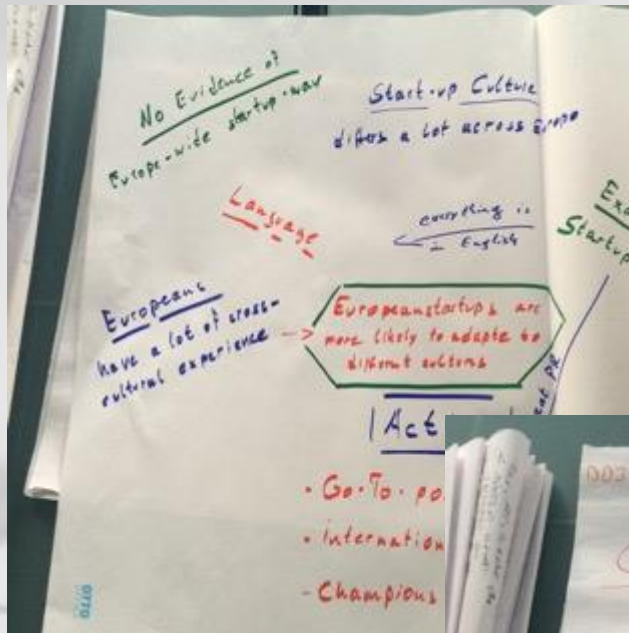 No Evidence of
Europe-wide startup-wav
Start-up Culture
differs a lot across Europe
Language
everything is
in English
Exa
Startup
Europeans
have a lot of cross-
cultural experience
European startups are
more likely to adapte to
different cultures
Act
• Go-To-po
• internation
- Champions
OTTO